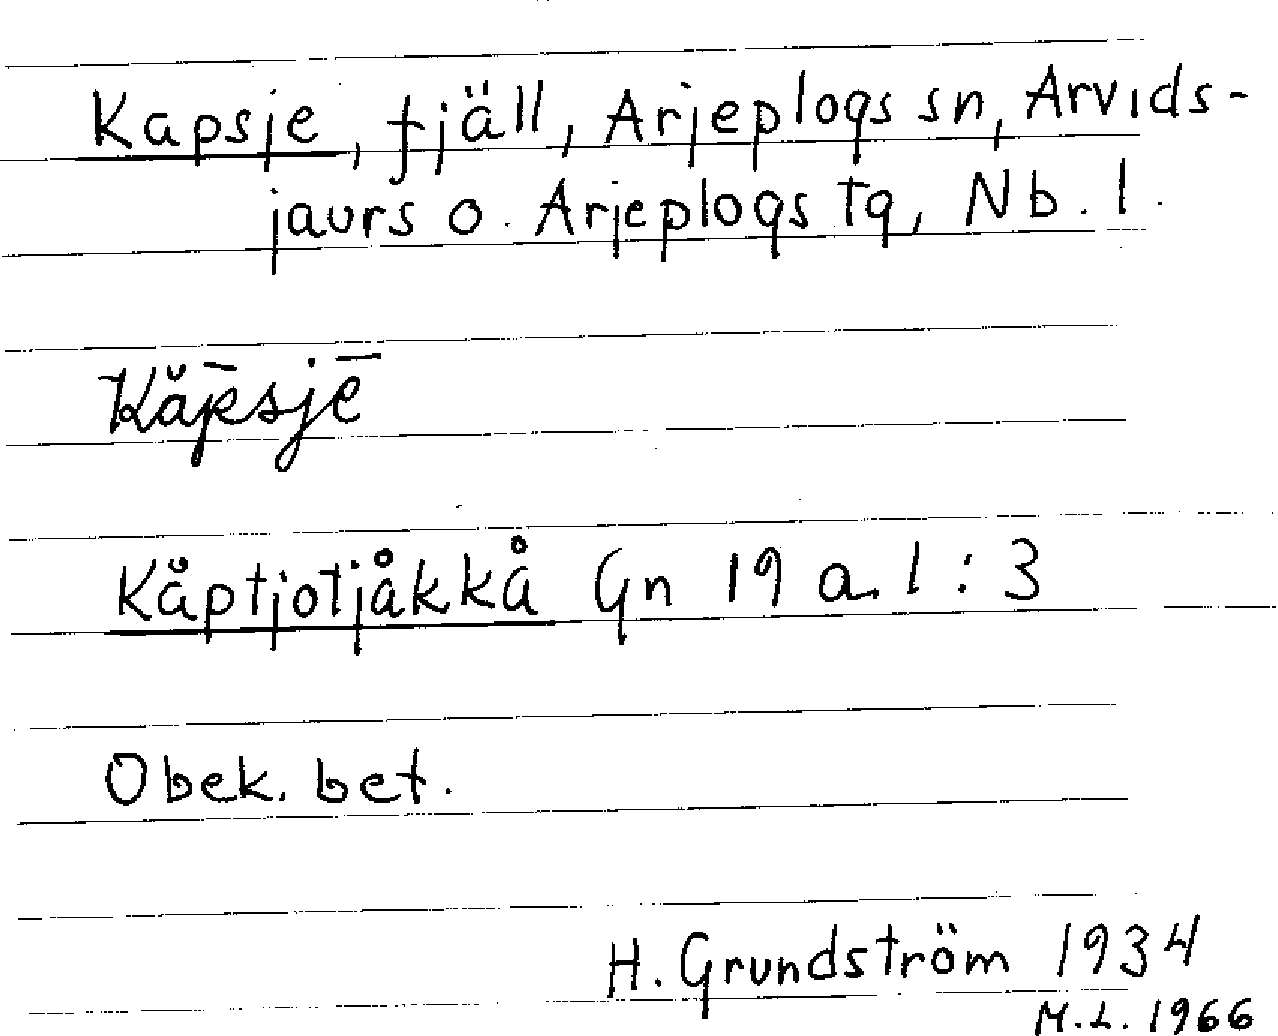 Kapsje, fjäll, Arjeplogs sn, Arvids-
jaurs o. Arjeplogs tg, Nb. l.
Kăp̄sjē
Kåptjotjåkkå Gn 19 a. l : 3
Obek. bet.
H. Grundström 1934
M.L. 1966